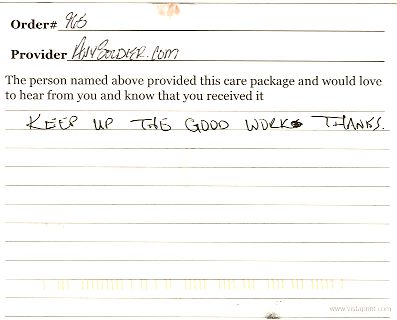 Order# 965
Provider AnySoldier.com
The person named above provided this care package and would love
to hear from you and know that you received it
KEEP UP THE GOOD WORK THANKS.
www.vistaprint.com